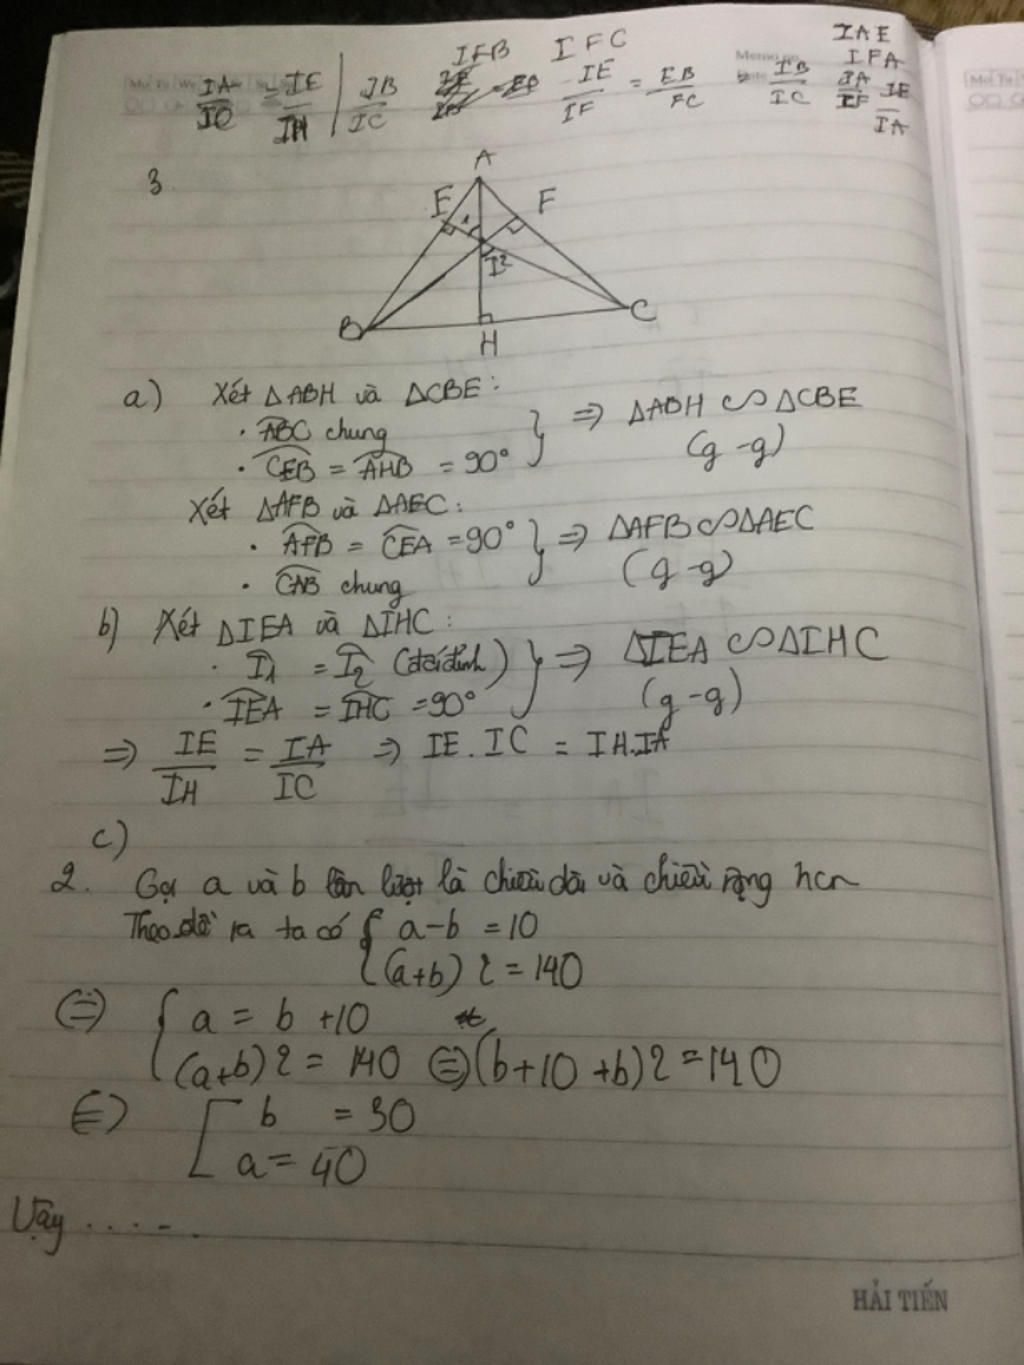 IAE
IFB IFC IFA
IA/IC = IE/IH | IB/IC IE/IF = EB/FC IB/IC IA/IF IE/IA
3.
A
E F
1
I 2
B C
H
a) Xét ΔABH và ΔCBE:
· ABC chung
· CEB = AHB = 90° } ⇒ ΔABH ∽ ΔCBE
(g-g)
Xét ΔAFB và ΔAEC:
· AFB = CEA = 90° } ⇒ ΔAFB ∽ ΔAEC
· CAB chung (g-g)
b) Xét ΔIEA và ΔIHC:
· I1 = I2 (đối đỉnh) } ⇒ ΔIEA ∽ ΔIHC
· IEA = IHC = 90° (g-g)
⇒ IE/IH = IA/IC ⇒ IE.IC = IH.IA
c)
2. Gọi a và b lần lượt là chiều dài và chiều rộng hcn
Theo đề ra ta có { a-b = 10
(a+b) 2 = 140
(=) { a = b +10
(a+b) 2 = 140 (=) (b+10 +b) 2 = 140
(=) [ b = 30
a = 40
Vậy .....
HẢI TIẾN